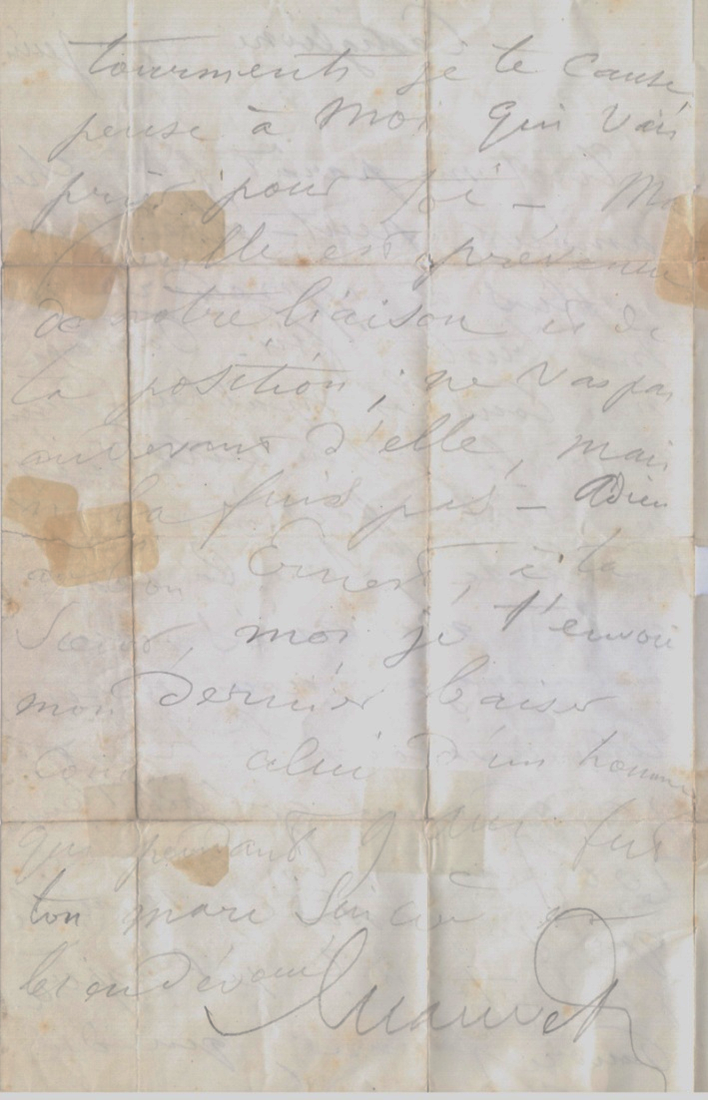 tourments je te cause
pense à moi qui vais
prier pour toi — Ma
famille est prévenue
de notre liaison et de
ta position ; ne vas pas
au devant d'elle, mais
ne la fuis pas — Adieu
Ernest, à ta
Sœur, moi je t'envoie
mon dernier baiser
celui d'un homme
qui pendant 9 ans fut
ton mari sincère et
bien dévoué